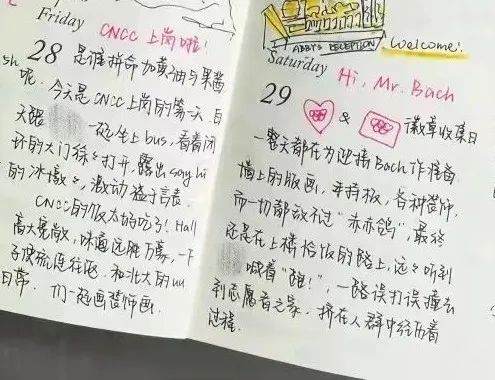 Friday
CNCC 上岗啦!
28 是谁拼命加黄油与果酱
呢. 今天是CNCC上岗的第一天. 白
天跟 一起坐上bus, 看着闭
环的大门徐徐打开, 露出say hi
的"冰墩墩", 激动溢于言表.
CNCC的饭太好吃了! Hall
高大宽敞, 味道远胜万豪, 一下
子便流连往返. 和北大的uu
们一起画装饰画.
日常.
sh
ABBY'S RECEPTION
Welcome!
Saturday
Hi, Mr. Bach
29 & 徽章收集日
一整天都在为迎接Bach作准备.
墙上的版画, 手持板, 各种装饰,
而一切都敌不过"赤赤鸽". 最终
还是在上楼恰饭的路上, 远远听到
喊着"跑!", 一路误打误撞去
到志愿者之家. 挤在人群中经历着
过程.